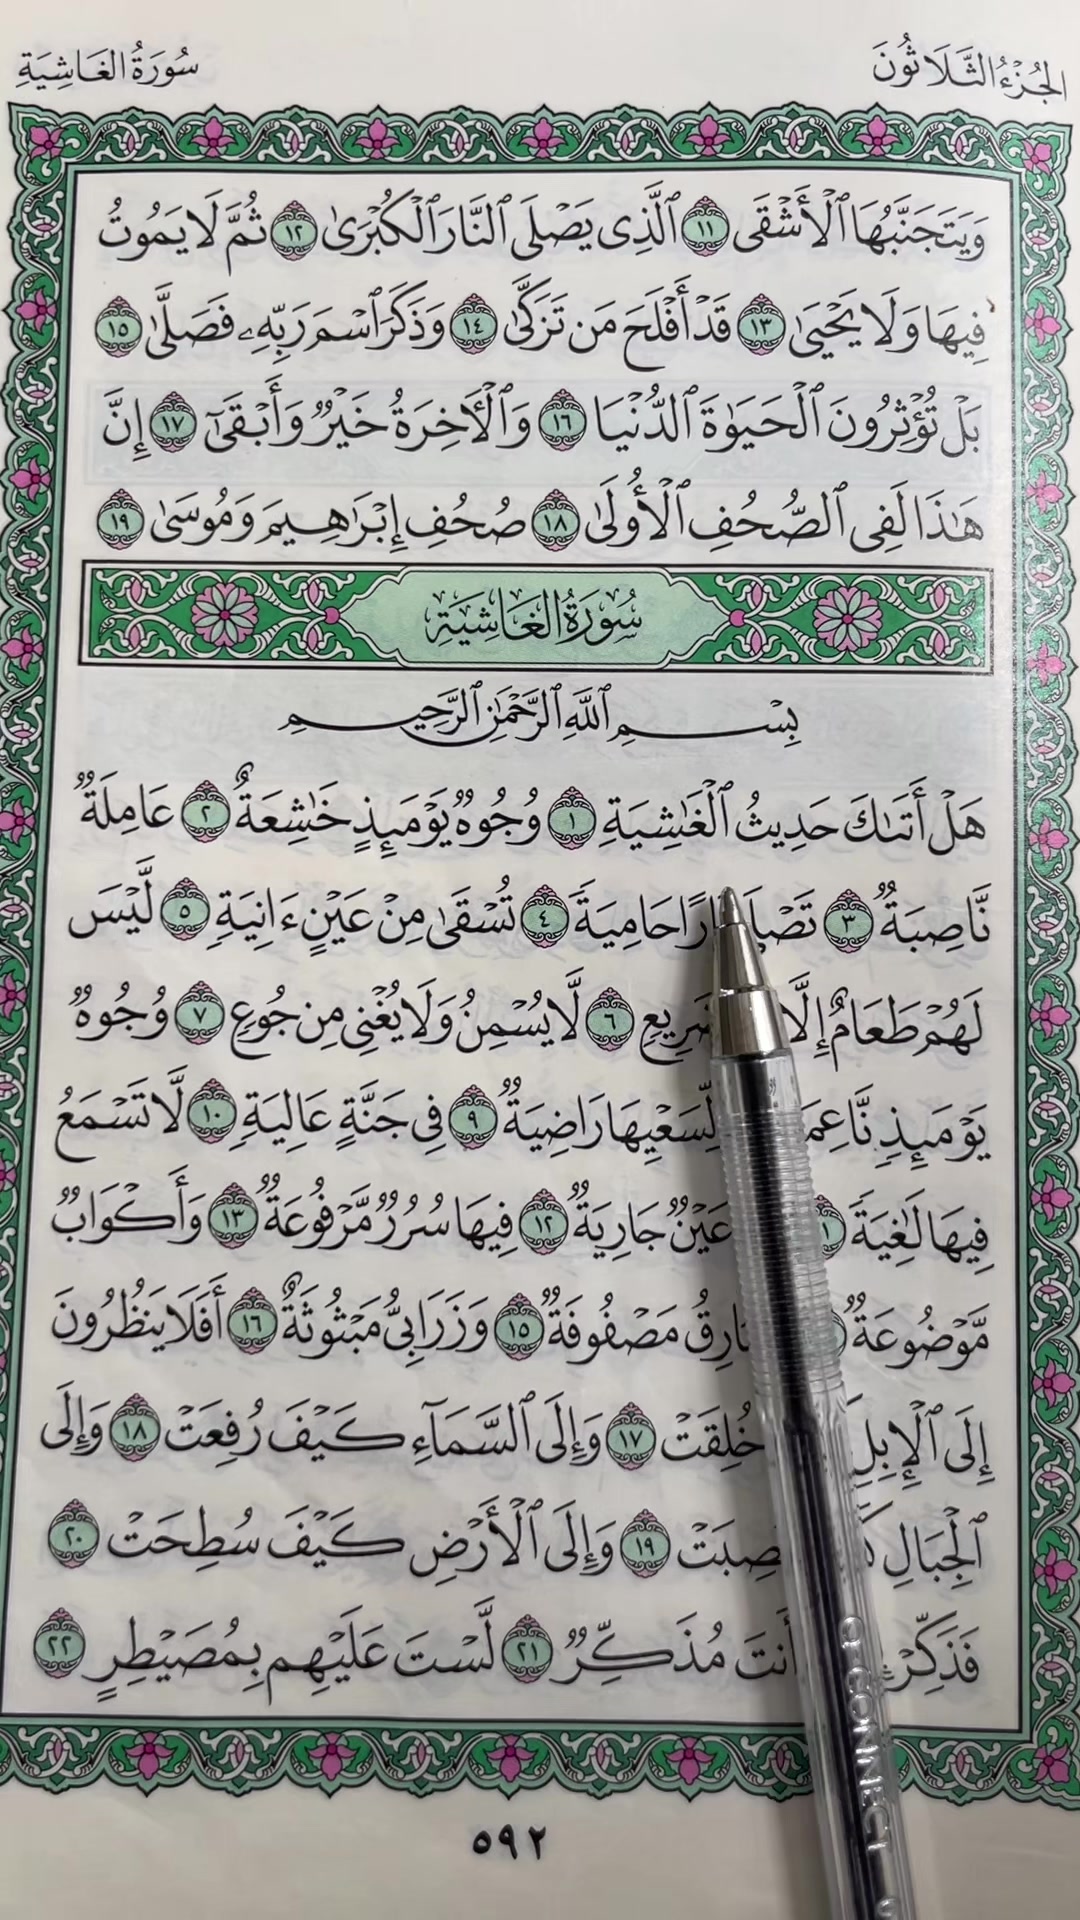 الجُزْءُ الثَّلَاثُونَ
سُورَةُ الغَاشِيَةِ
وَيَتَجَنَّبُهَا ٱلْأَشْقَى ١١ ٱلَّذِى يَصْلَى ٱلنَّارَ ٱلْكُبْرَىٰ ١٢ ثُمَّ لَا يَمُوتُ
فِيهَا وَلَا يَحْيَىٰ ١٣ قَدْ أَفْلَحَ مَن تَزَكَّىٰ ١٤ وَذَكَرَ ٱسْمَ رَبِّهِۦ فَصَلَّىٰ ١٥
بَلْ تُؤْثِرُونَ ٱلْحَيَوٰةَ ٱلدُّنْيَا ١٦ وَٱلْأَخِرَةُ خَيْرٌ وَأَبْقَىٰٓ ١٧ إِنَّ
هَٰذَا لَفِى ٱلصُّحُفِ ٱلْأُولَىٰ ١٨ صُحُفِ إِبْرَٰهِيمَ وَمُوسَىٰ ١٩
سُورَةُ الغَاشِيَةِ
بِسْمِ ٱللَّهِ ٱلرَّحْمَٰنِ ٱلرَّحِيمِ
هَلْ أَتَىٰكَ حَدِيثُ ٱلْغَٰشِيَةِ ١ وُجُوهٌ يَوْمَئِذٍ خَٰشِعَةٌ ٢ عَامِلَةٌ
نَّاصِبَةٌ ٣ حَامِيَةً ٤ تُسْقَىٰ مِنْ عَيْنٍ ءَانِيَةٍ ٥ لَّيْسَ
لَهُمْ طَعَامٌ إِلَّا ٦ لَّا يُسْمِنُ وَلَا يُغْنِى مِن جُوعٍ ٧ وُجُوهٌ
يَوْمَئِذٍ لِّسَعْيِهَا رَاضِيَةٌ ٩ فِى جَنَّةٍ عَالِيَةٍ ١٠ لَّا تَسْمَعُ
فِيهَا لَٰغِيَةً عَيْنٌ جَارِيَةٌ ١٢ فِيهَا سُرُرٌ مَّرْفُوعَةٌ ١٣ وَأَكْوَابٌ
مَّوْضُوعَةٌ مَصْفُوفَةٌ ١٥ وَزَرَابِىُّ مَبْثُوثَةٌ ١٦ أَفَلَا يَنظُرُونَ
إِلَى ٱلْإِبِلِ خُلِقَتْ ١٧ وَإِلَى ٱلسَّمَآءِ كَيْفَ رُفِعَتْ ١٨ وَإِلَى
ٱلْجِبَالِ ١٩ وَإِلَى ٱلْأَرْضِ كَيْفَ سُطِحَتْ ٢٠
فَذَكِّرْ أَنتَ مُذَكِّرٌ ٢١ لَّسْتَ عَلَيْهِم بِمُصَيْطِرٍ ٢٢
٥٩٢
CONNECT